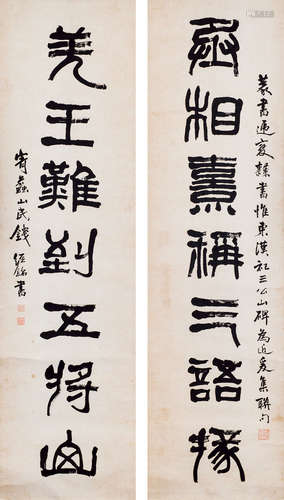 篆書遞變隸書惟東漢祀三公山碑為近爰集聯句
尉相熹稱三語掾
羌王難到五將山
山民錢經銘書